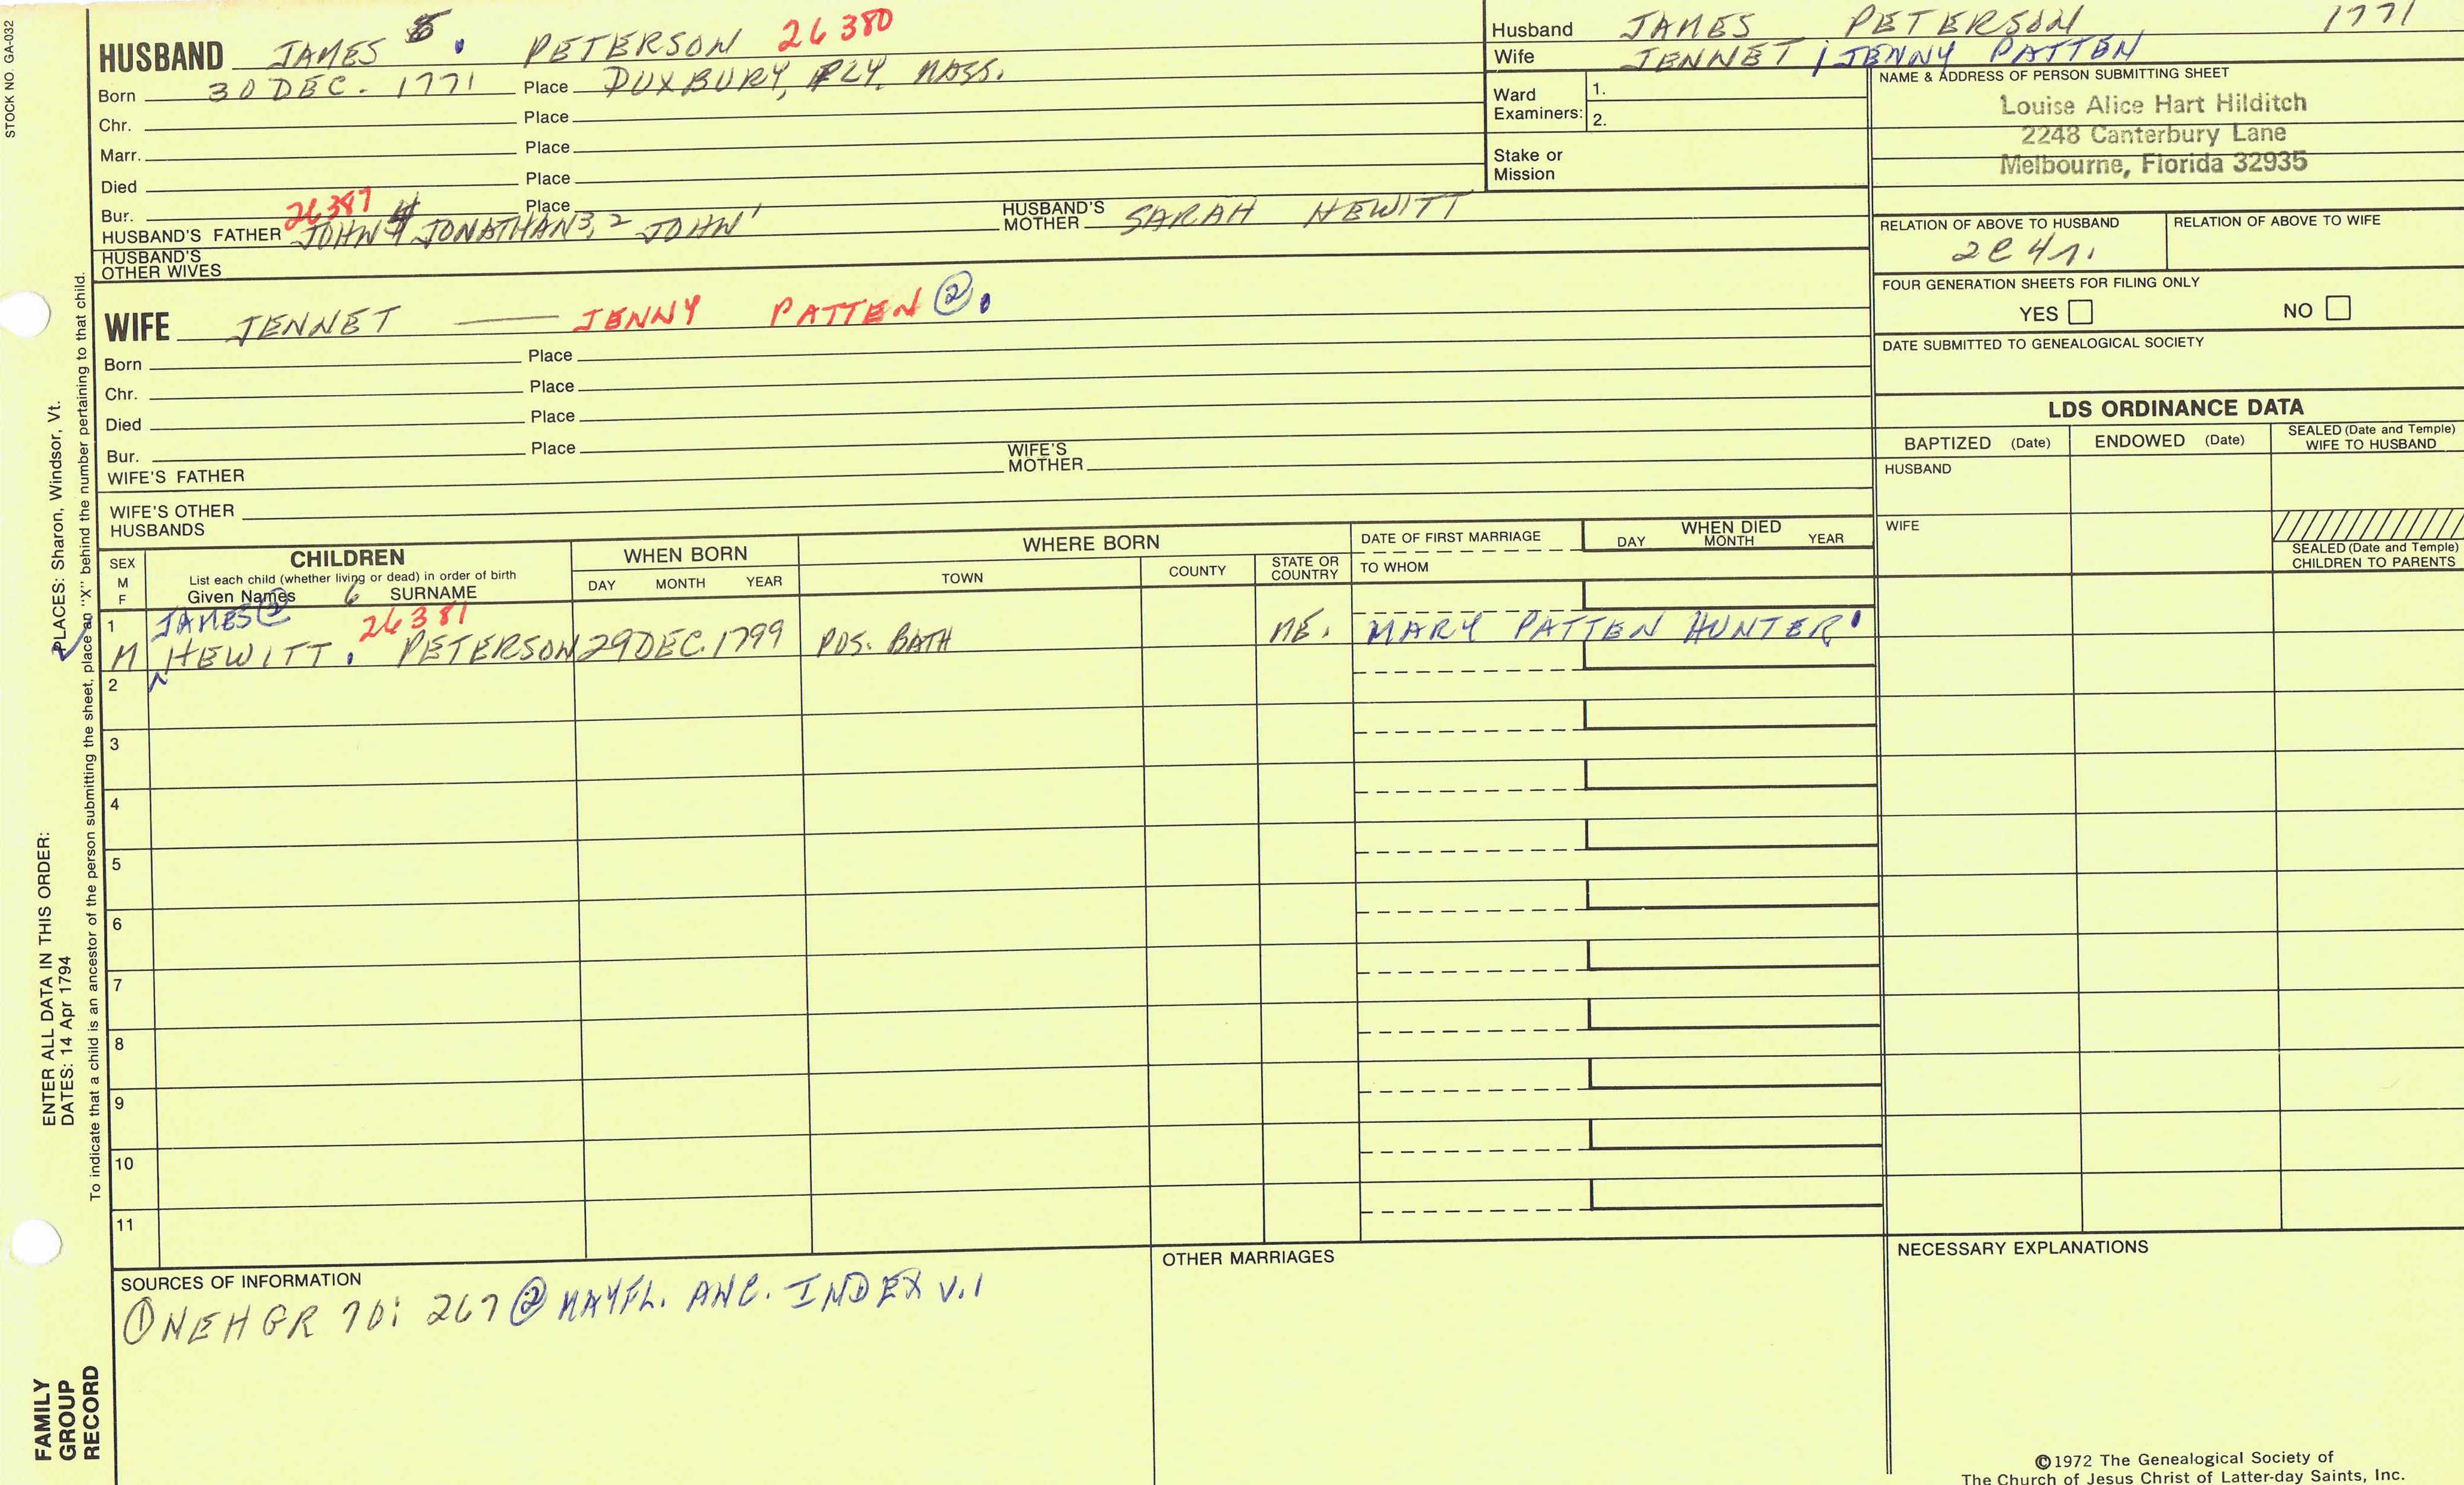 STOCK NO. GA-032
HUSBAND JAMES 5. PETERSON 26380
Born 30 DEC. 1771 Place DUXBURY, PLY, MASS.
Chr. Place
Marr. Place
Died Place
Bur. Place
26387
HUSBAND'S FATHER JOHN 4 JONATHAN 3, 2 JOHN 1 HUSBAND'S MOTHER SARAH HEWITT
HUSBAND'S OTHER WIVES
WIFE JENNET — JENNY PATTEN ②.
Born Place
Chr. Place
Died Place
Bur. Place
WIFE'S FATHER WIFE'S MOTHER
WIFE'S OTHER HUSBANDS
Husband JAMES PETERSON 1771
Wife JENNET / JENNY PATTEN
Ward Examiners: 1.
2.
Stake or Mission
NAME & ADDRESS OF PERSON SUBMITTING SHEET
Louise Alice Hart Hilditch
2248 Canterbury Lane
Melbourne, Florida 32935
RELATION OF ABOVE TO HUSBAND RELATION OF ABOVE TO WIFE
2C 4r.
FOUR GENERATION SHEETS FOR FILING ONLY
YES NO
DATE SUBMITTED TO GENEALOGICAL SOCIETY
LDS ORDINANCE DATA
BAPTIZED (Date) ENDOWED (Date) SEALED (Date and Temple) WIFE TO HUSBAND
HUSBAND
WIFE
SEALED (Date and Temple) CHILDREN TO PARENTS
SEX M F CHILDREN WHEN BORN WHERE BORN DATE OF FIRST MARRIAGE WHEN DIED
List each child (whether living or dead) in order of birth
Given Names SURNAME DAY MONTH YEAR TOWN COUNTY STATE OR COUNTRY TO WHOM DAY MONTH YEAR
1 JAMES ② 6 26381
M HEWITT . PETERSON 29 DEC. 1799 POS. BATH ME. MARY PATTEN HUNTER
2
3
4
5
6
7
8
9
10
11
SOURCES OF INFORMATION
① NEHGR 70: 267 ② MAYFL. ANC. INDEX V.1
OTHER MARRIAGES
NECESSARY EXPLANATIONS
©1972 The Genealogical Society of
The Church of Jesus Christ of Latter-day Saints, Inc.
PLACES: Sharon, Windsor, Vt.
To indicate that a child is an ancestor of the person submitting the sheet, place an "X" behind the number pertaining to that child.
ENTER ALL DATA IN THIS ORDER:
DATES: 14 Apr 1794
FAMILY
GROUP
RECORD